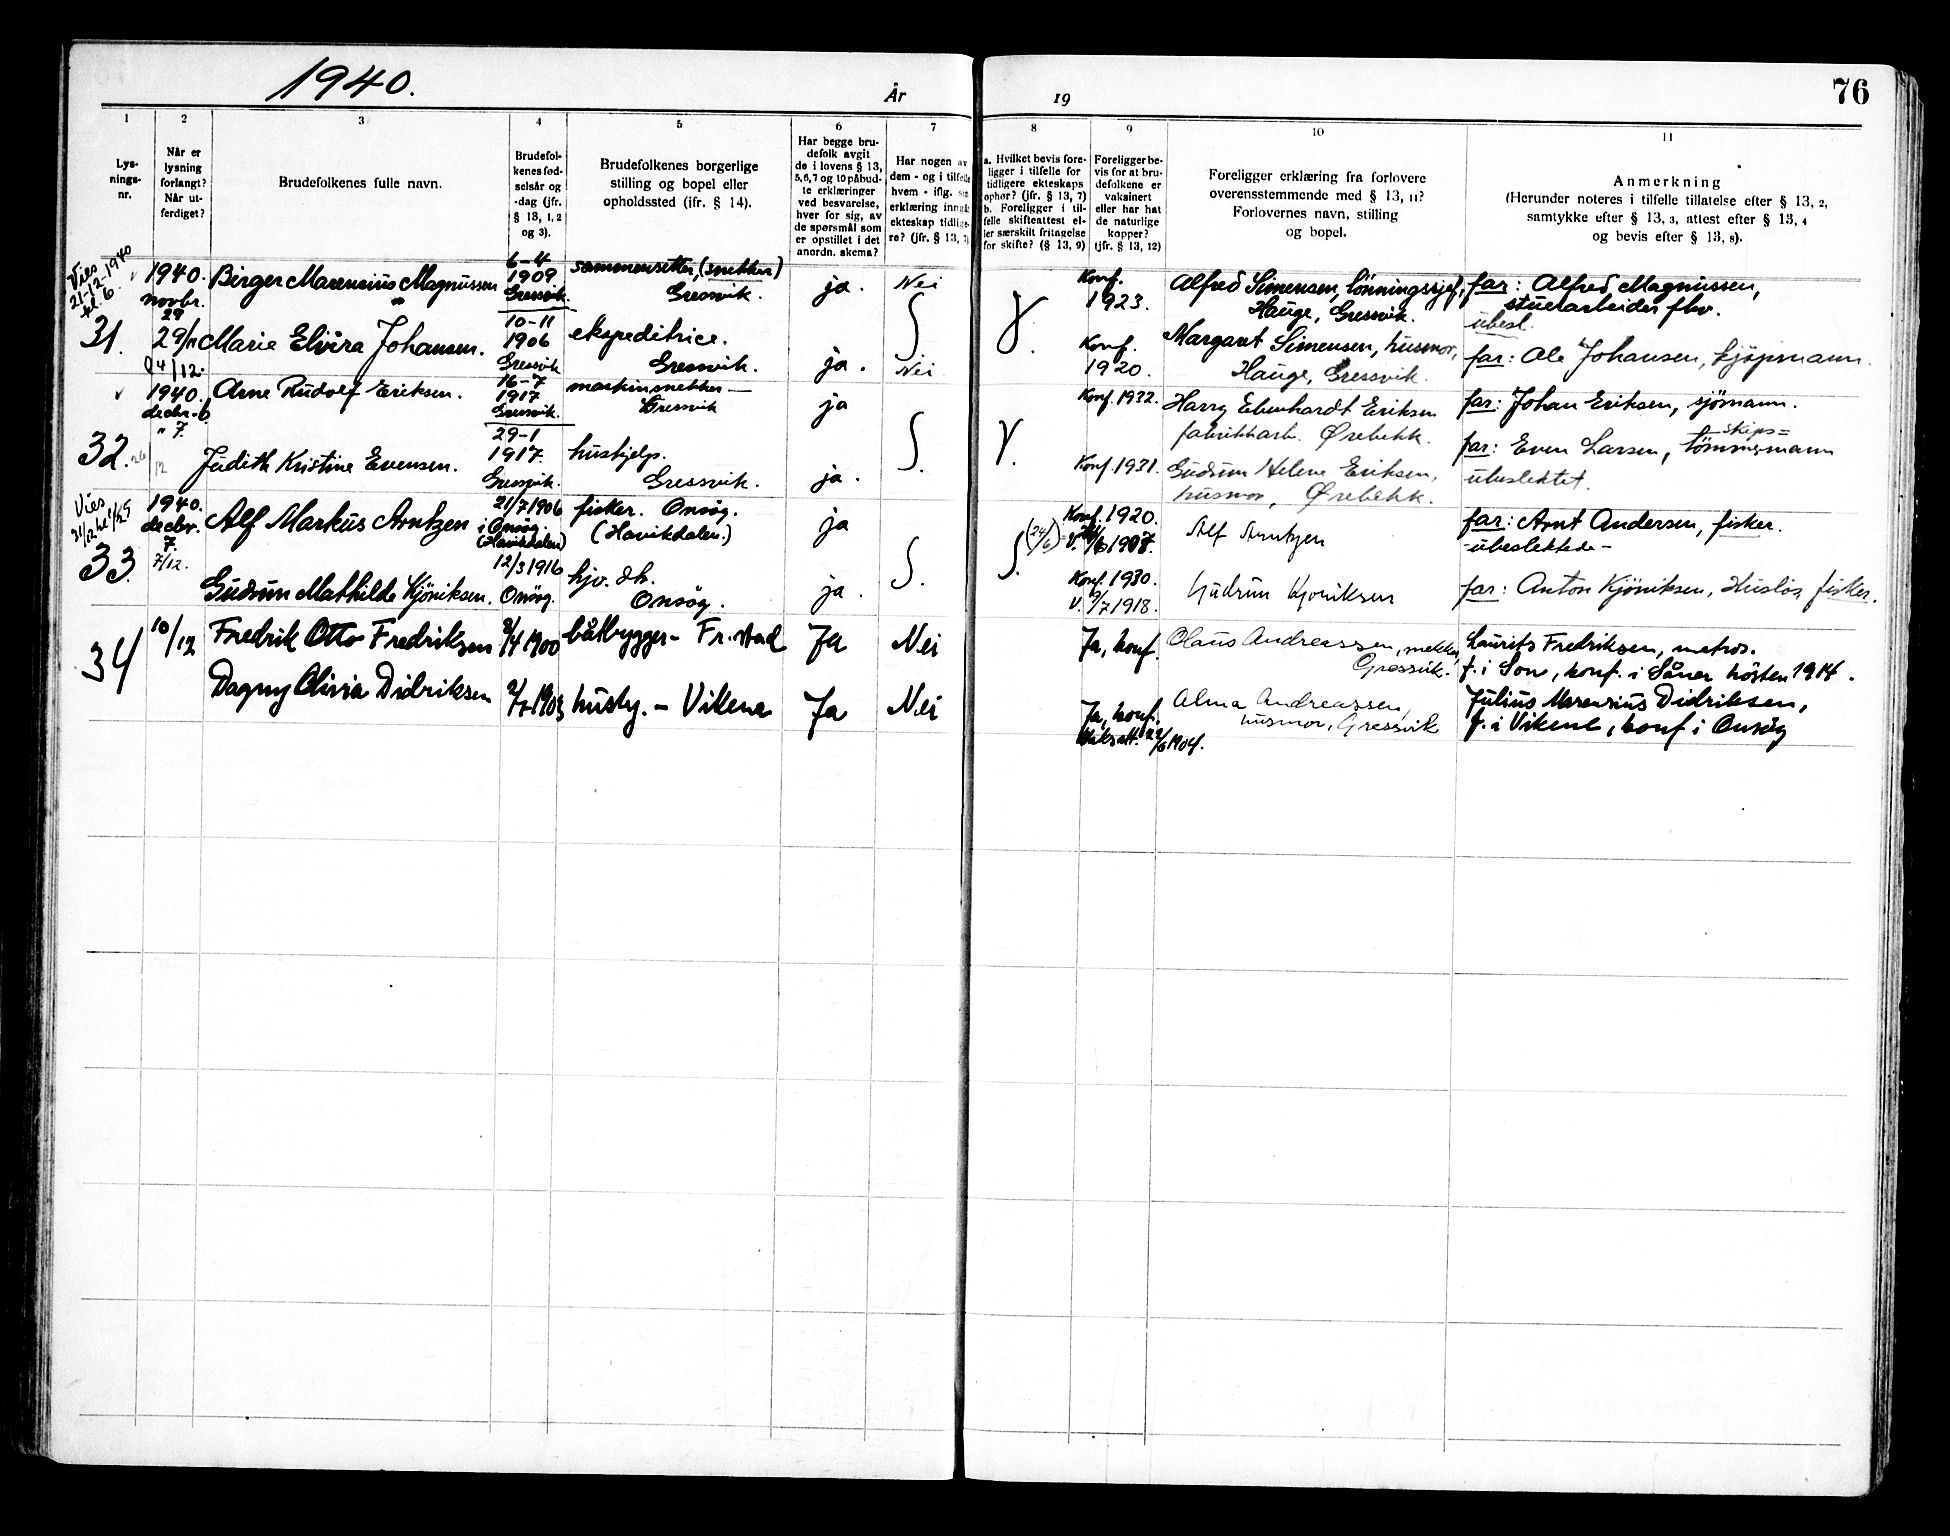 1940.
År
19
76
1
2
3
4
5
6
7
8
9
10
11
Lys-
nings-
nr.
Når er
lysning
forlangt?
Når ut-
ferdiget?
Brudefolkenes fulle navn.
Brudefol-
kenes fød-
selsår og
-dag (jfr.
§ 13, 1, 2
og 3).
Brudefolkenes borgerlige
stilling og bopel eller
opholdssted (ifr. § 14).
Har begge bru-
defolk avgit
de i lovens § 13,
5, 6, 7 og 10 påbud-
te erklæringer
ved besvarelse,
hver for sig, av
de spørsmål som
er opstillet i det
anordn. skema?
Har nogen av
dem - og i tilfelle
hvem - iflg. sin
erklæring inngå
ekteskap tidlige-
re? (jfr. § 13, 7)
a. Hvilket bevis fore-
ligger i tilfelle for
tidligere ekteskaps
ophør? (jfr. § 13, 7)
b. Foreligger i til-
felle skifteattest el-
ler særskilt fritagelse
for skifte? (§ 13, 9)
Foreligger be-
vis for at bru-
defolkene er
vaksinert
eller har hat
de naturlige
kopper?
(jfr. § 13, 12)
Foreligger erklæring fra forlovere
overensstemmende med § 13, 11?
Forlovernes navn, stilling
og bopel.
Anmerkning
(Herunder noteres i tilfelle tillatelse efter § 13, 2,
samtykke efter § 13, 3, attest efter § 13, 4
og bevis efter § 13, 8).
Vies
21-12-1940
kl. 6.
31.
1940.
novbr.
29
29/11
14/12.
Birger Marensius Magnussen
6-4
1909
Gressvik.
sammensetter, (snekker)
Gressvik.
ja.
Nei
Konf.
1923.
Alfred Simensen, lönningssjef,
Hauge, Gressvik.
far: Alfred Magnussen,
stuearbeider fhv.
übesl.
Marie Elvira Johansen.
10-11
1906
Gressvik
ekspeditrice.
Gressvik.
ja.
Nei
Konf.
1920.
Margaret Simensen, husmor,
Hauge, Gressvik.
far: Ole Johansen, kjöpmann.
32.
1940.
decbr. 6
" 7.
26
12
Arne Rudolf Eriksen.
16-7
1917
Gressvik.
maskinsnekker-
Gressvik
ja
Konf. 1932.
Harry Eberhardt Eriksen
fabrikkarb. Ørebekk.
far: Johan Eriksen, sjömann.
Judith Kristine Evensen.
29-1
1917.
Gressvik.
hushjelp.
Gressvik.
ja.
Konf. 1931.
Gudrun Helene Eriksen,
husmor, Ørebekk.
far: Even Larsen, skips=
tömmermann
ubeslektet.
Vies
33
1940.
decbr.
7.
7/12.
Alf Markus Arntzen
21/7 1906
i Onsøg.
(Havikdalen)
fisker. Onsøg.
(Havikdalen.)
ja
(24/6)
Konf. 1920.
Alf Arntzen
far: Arnt Andersen, fisker.
-ubeslektede-
Gudrun Mathilde Kjöniksen.
12/3 1916
Onsøg.
hjv. dh.
Onsøg.
ja.
Konf. 1930.
v. 9/7 1918.
Gudrun Kjöniksen
far: Anton Kjöniksen, Huslös, fisker.
34
10/12
Fredrik Otto Fredriksen
2/4 1900
båtbygger- Fr.stad
Ja
Nei
Ja, konf.
Claus Andreassen, snekker,
Gressvik.
Laurits Fredriksen, matros.
f. i Son, konf. i Såner hösten 1914.
Dagny Olivia Didriksen
husby. - Vikene
Ja
Nei
Ja, konf.
Vaks.att. 22/6 1904.
Alma Andreassen,
husmor, Gressvik
Julius Marensius Didriksen,
f. i Vikene, konf i Onsøy